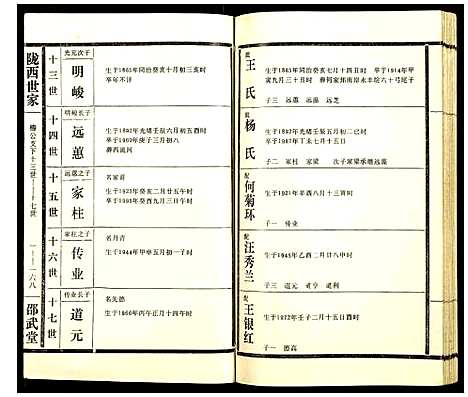 陇西世家
椿公支下十三世——十七世
一——一六八
邵武堂
十三世
光元次子
明峻
生于1863年同治癸亥十月初三亥时
卒年不详
十四世
明峻长子
远蕙
生于1892年光绪壬辰六月初五酉时
卒于1960年庚子三月初八
葬西流河
十五世
远蕙之子
家柱
名家首
生于1923年癸亥二月廿五午时
卒于1993年癸酉九月三日午时
十六世
家柱之子
传业
名丹青
生于1944年甲申五月初一子时
十七世
传业长子
道元
名先德
生于1966年丙午正月十四午时
配
王氏
生于1863年同治癸亥七月十四丑时
卒于1914年甲
寅九月三十日丑时
子三
远蕙
远藻
远芝
配
杨氏
生于1892年光绪壬辰五月初二巳时
卒于1967年丁未
子二
家柱
家梁
次子家梁承继远藻
配
何菊环
生于1921年辛酉八月十三寅时
子一
传业
配
汪秀兰
生于1945年乙酉二月廿八申时
子三
道元
道亨
道利
配
王银红
生于1972年壬子二月十五日酉时
子一
德高